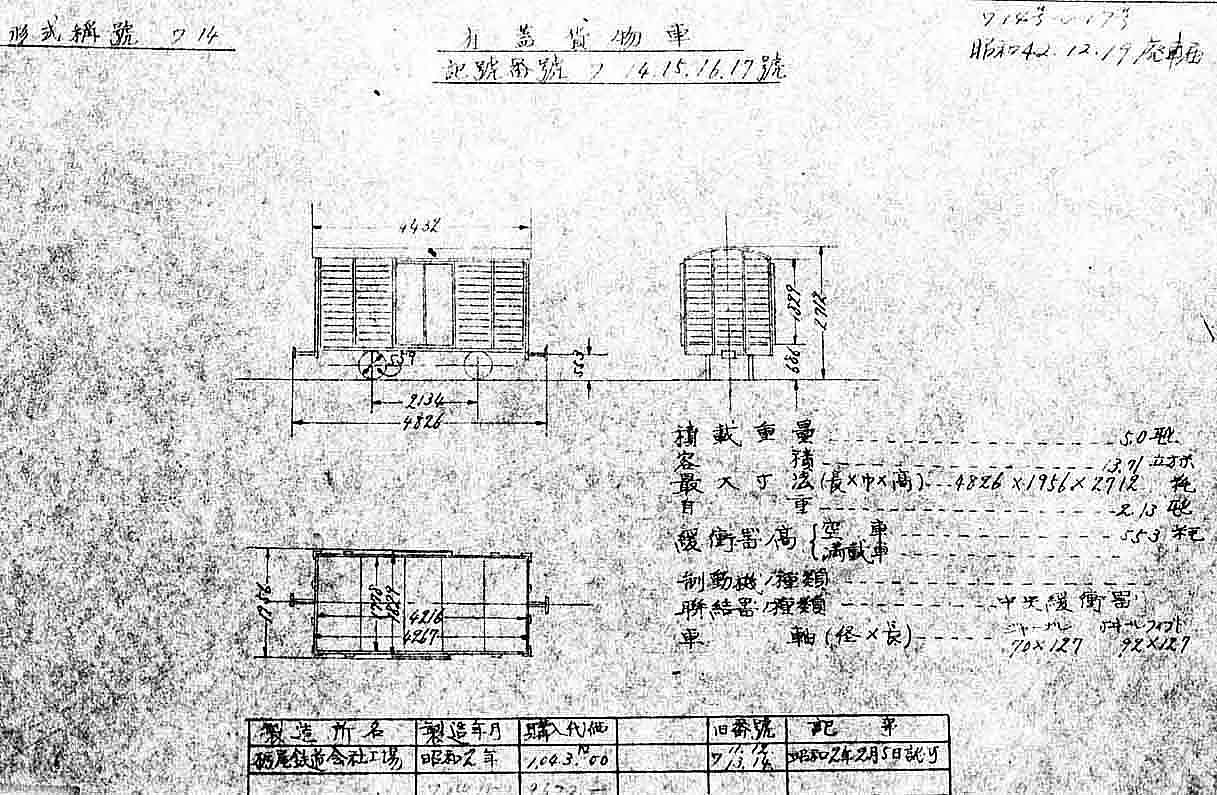 形式稱號 ワ14
有蓋貨物車
記號番號 ワ 14.15.16.17號
昭和42.12.19 廃車届
4432
559
563
2134
4826
1829
2712
686
積載重量 5.0 瓲
容積 13.71 立方米
最大寸法(長×巾×高) 4826×1956×2712 粍
自重 2.13 瓲
緩衝器高 空車 553 粍
満載車
制動機ノ種類
聯結器ノ種類 中央緩衝器
車軸(径×長) 70×127 92×127
1770
1829
4216
4267
製造所名 製造年月 購入代価 旧番號 記事
鉄道会社工場 昭和2年 1,043.00 ワ 11.12.13.14. 昭和2年2月5日認可